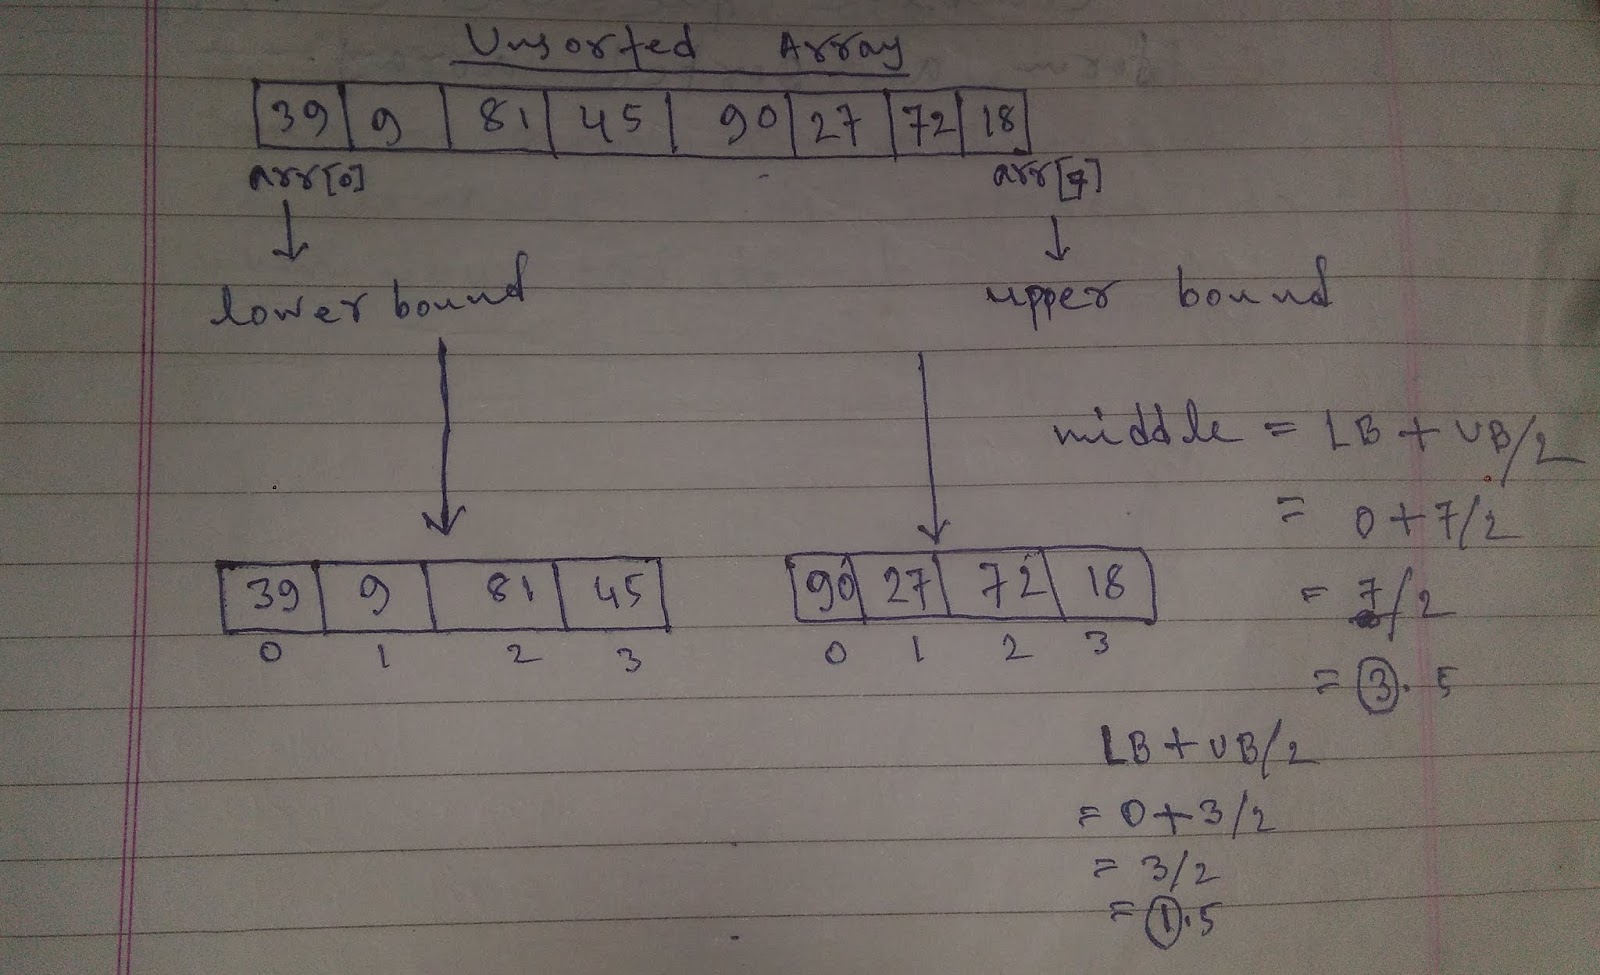 Unsorted Array
39 9 81 45 90 27 72 18
arr[0] arr[7]
lower bound upper bound
middle = LB + UB/2
= 0+7/2
39 9 81 45 90 27 72 18
= 7/2
0 1 2 3 0 1 2 3
= 3.5
LB + UB/2
= 0+3/2
= 3/2
= 1.5